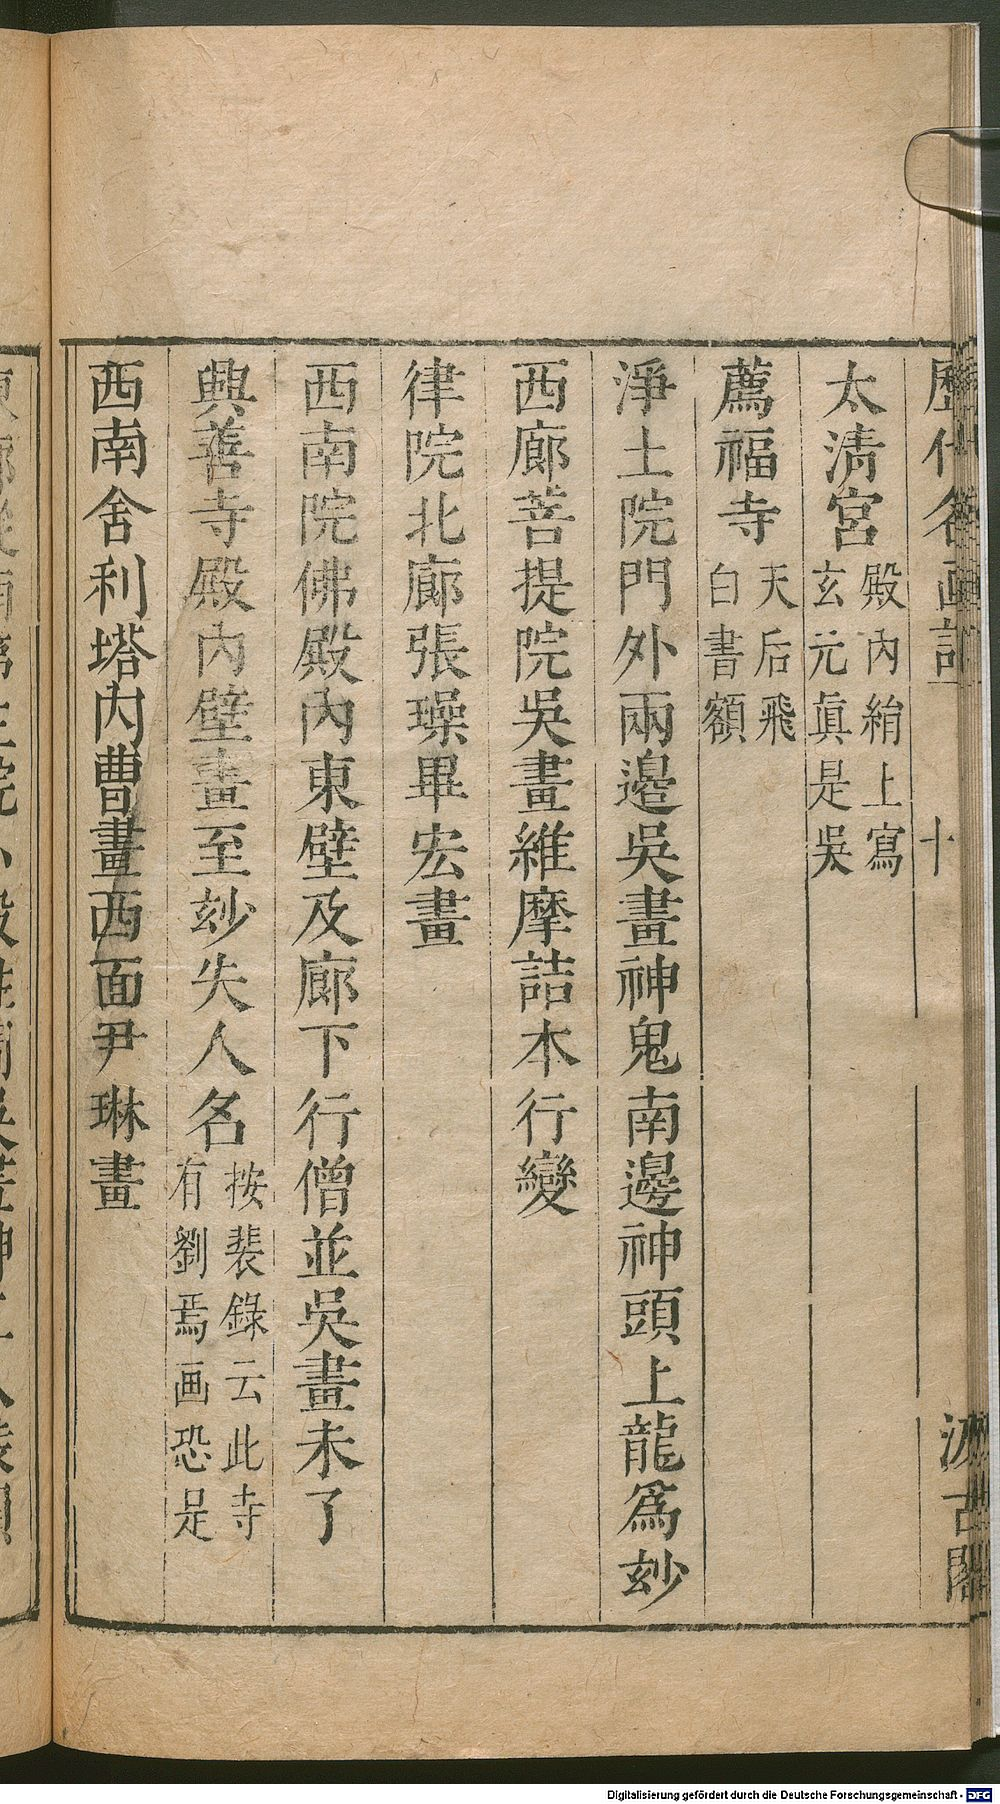 歷代名画記 十 汲古閣
太清宮 殿內絹上寫
玄元眞是吳
薦福寺 天后飛
白書額
淨土院門外兩邊吳畫神鬼南邊神頭上龍爲玅
西廊菩提院吳畫維摩詰本行變
律院北廊張璪畢宏畫
西南院佛殿內東壁及廊下行僧並吳畫未了
興善寺殿內壁畫至玅失人名 按裴錄云此寺
有劉焉画恐是
西南舍利塔內曹畫西面尹琳畫
Digitalisierung gefördert durch die Deutsche Forschungsgemeinschaft - DFG